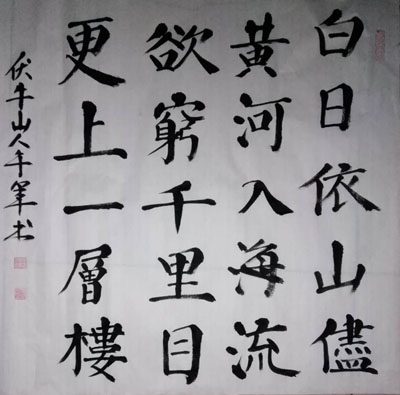 白日依山儘
黄河入海流
欲窮千里目
更上一層樓
伏牛山人牛軍书